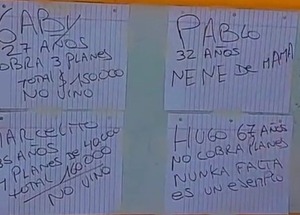 GABY
27 AÑOS
COBRA 3 PLANES
TOTAL $ 150000
NO VINO
PABLO
32 AÑOS
NENE DE MAMA
MARCELITO
35 AÑOS
PLANES DE 40000
TOTAL 160000
NO VINO
HUGO 67 AÑOS
NO COBRA PLANES
NUNKA FALTA
ES UN EJEMPLO